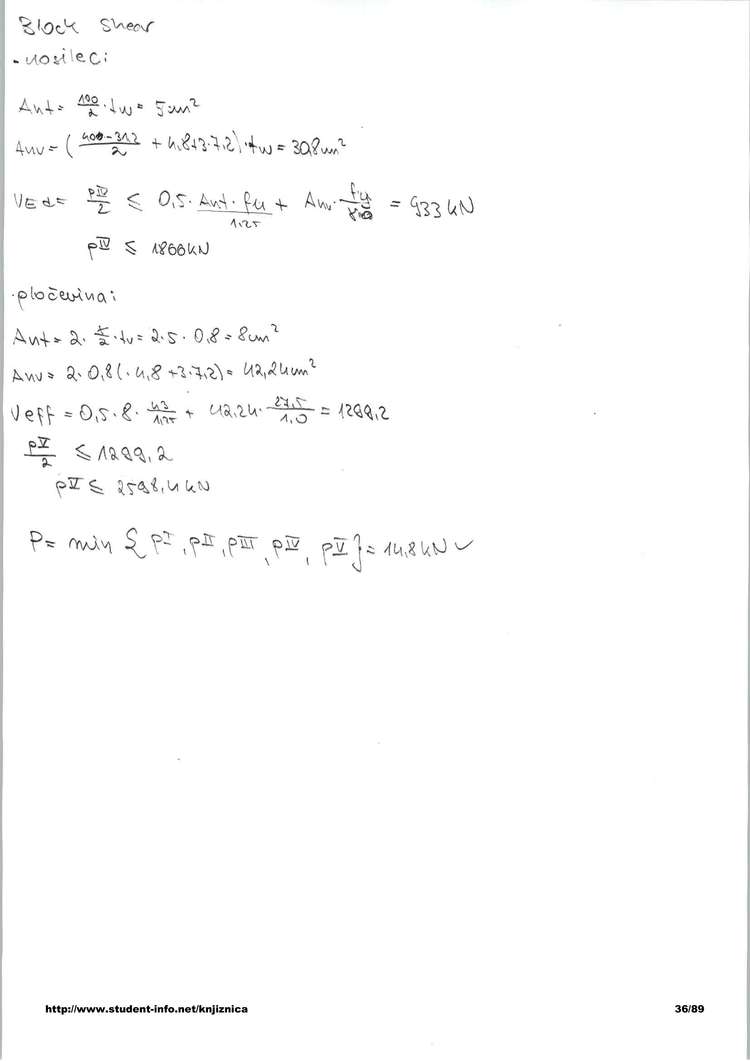 Block Shear
- nosilec:
Ant = 100/2 · tw = 5 cm²
Anv = (400-312/2 + 4,8+3·7,2) · tw = 30,8 cm²
VEd = P^IV/2 ≤ 0,5 · Ant · fu/1,25 + Anv · fy = 933 kN
P^IV ≤ 1866 kN
· pločevina:
Ant = 2 · /2 · tv = 2·5 · 0,8 = 8 cm²
Anv = 2 · 0,8 (· 4,8 + 3·7,2) = 42,24 cm²
Veff = 0,5 · 8 · 43/1,25 + 42,24 · 27,5/1,0 = 1299,2
P^V/2 ≤ 1299,2
P^V ≤ 2598,4 kN
P = min { P^I, P^II, P^III, P^IV, P^V } = 14,8 kN ✓
http://www.student-info.net/knjiznica
36/89